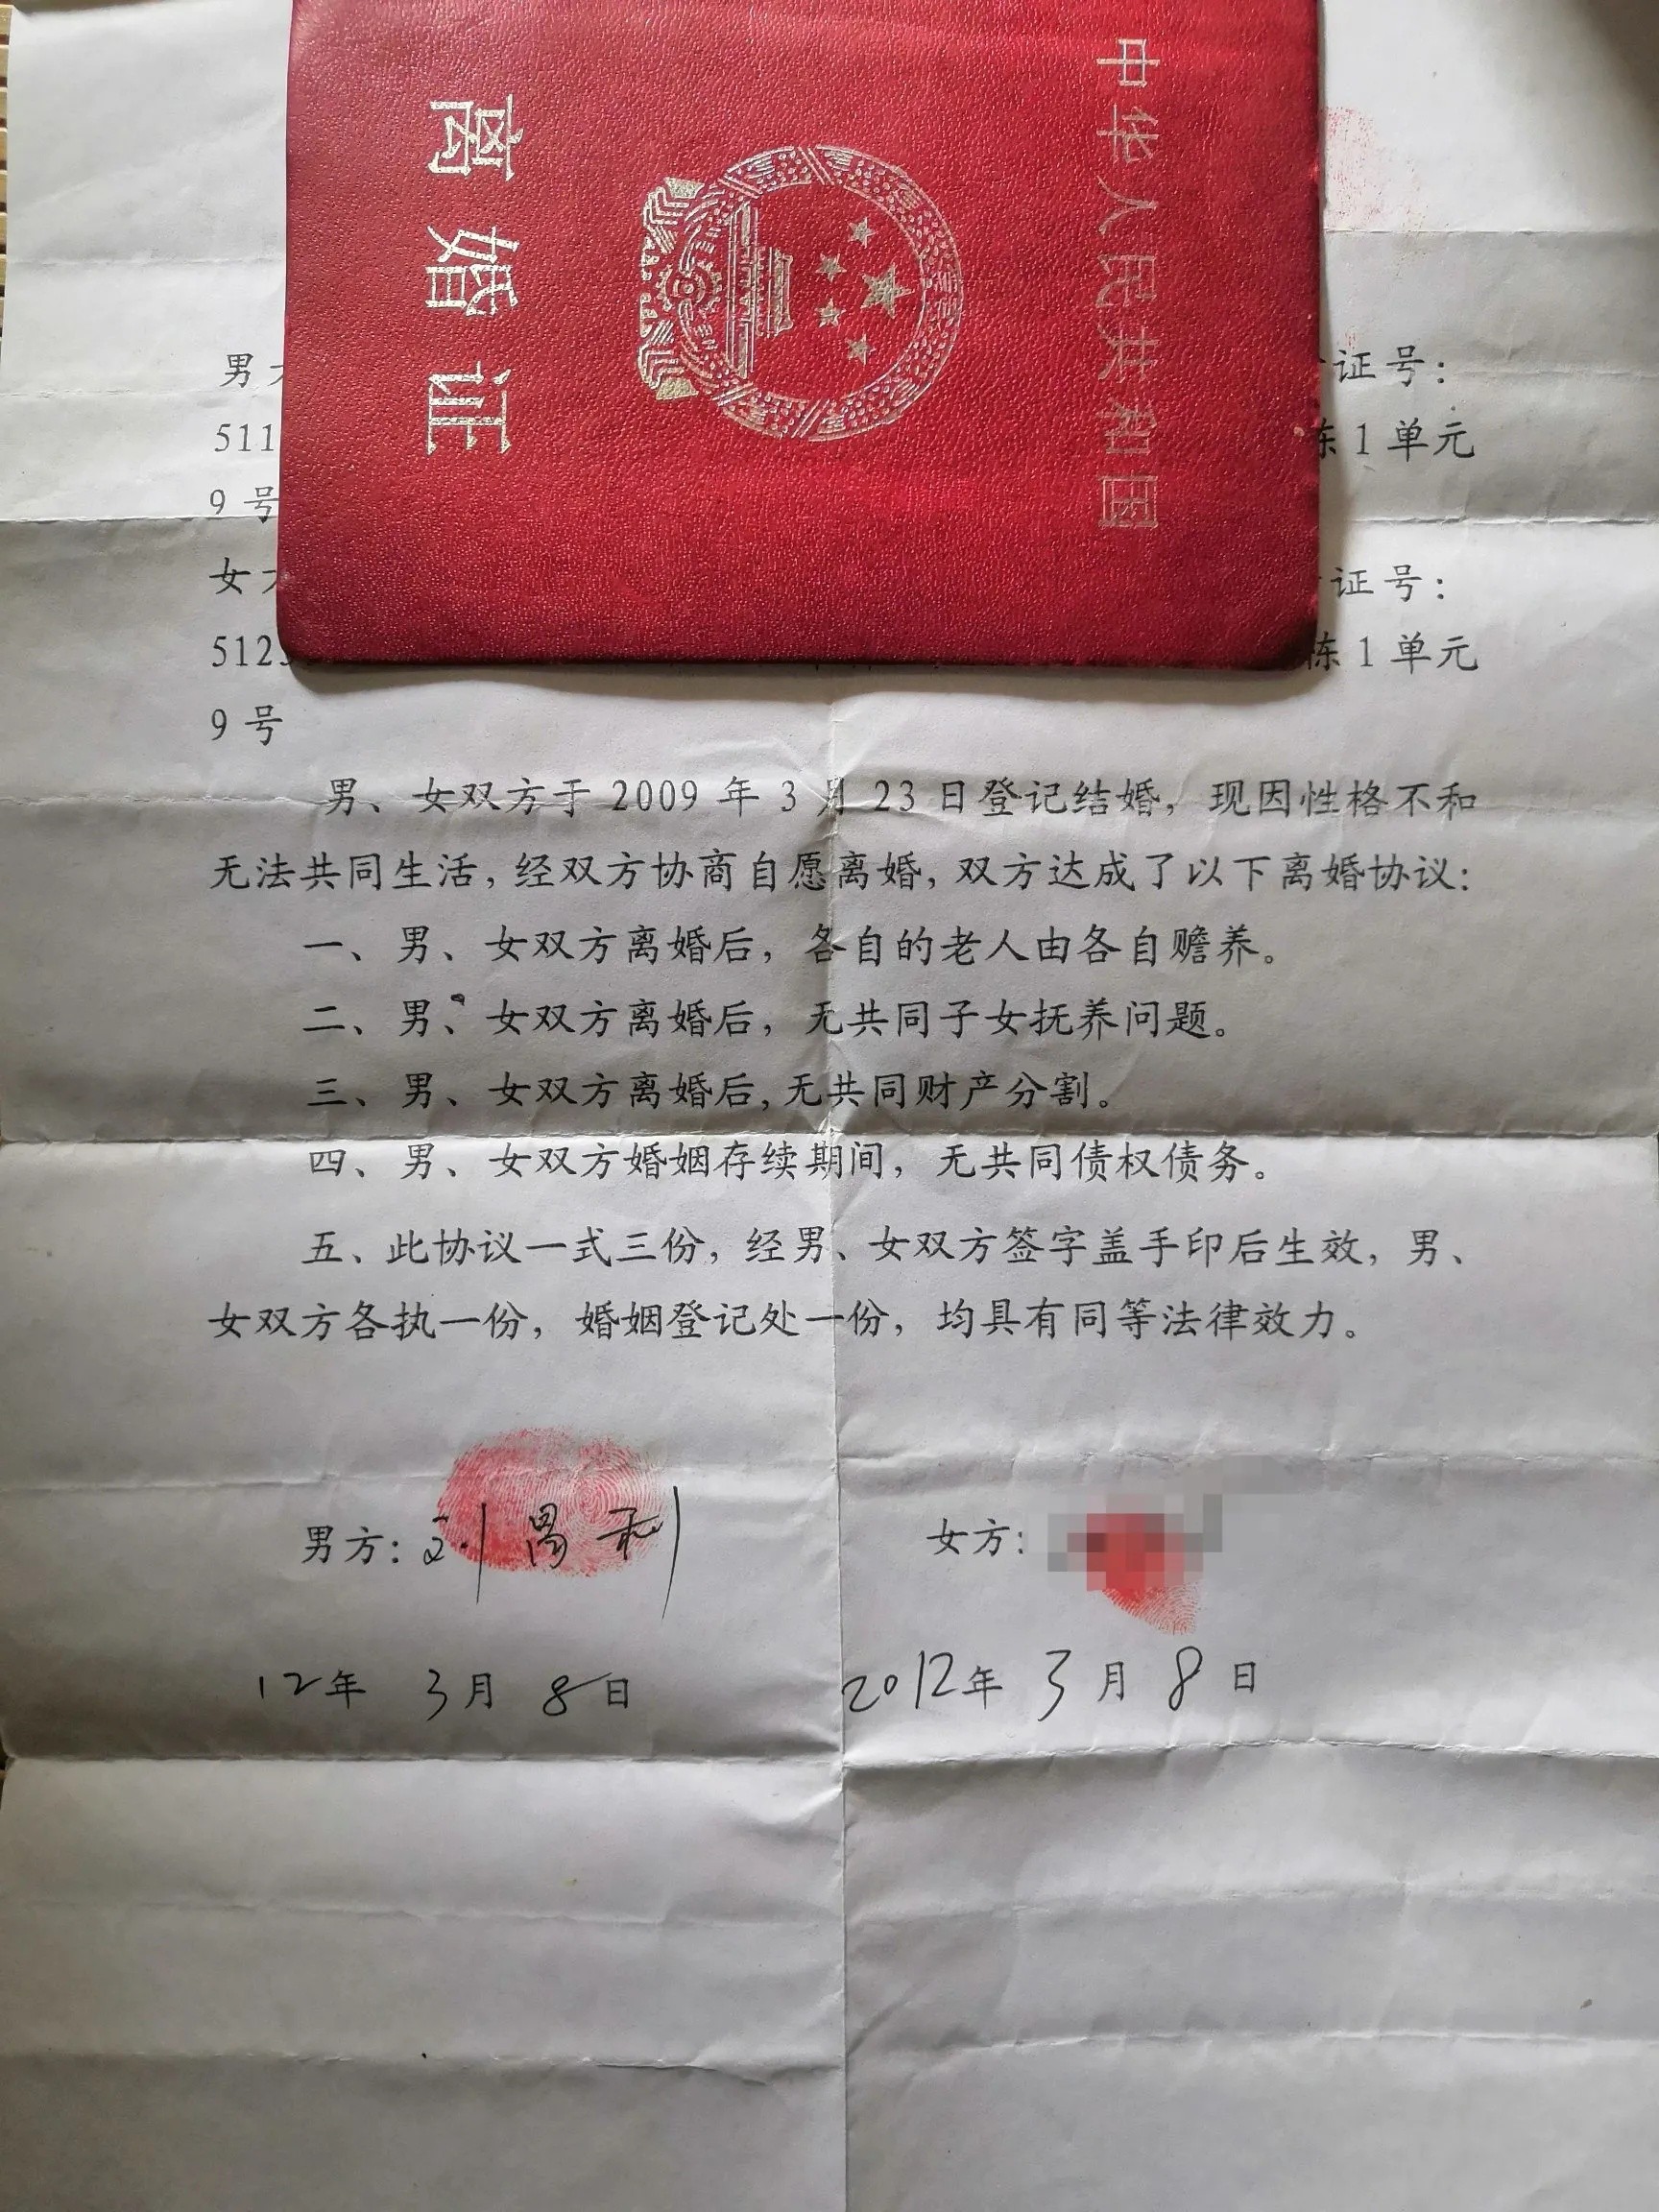 中华人民共和国
离婚证
男
证号：
511
栋1单元
9号
女
证号：
512
栋1单元
9号
男、女双方于 2009 年 3 月 23 日登记结婚，现因性格不和
无法共同生活，经双方协商自愿离婚，双方达成了以下离婚协议：
一、男、女双方离婚后，各自的老人由各自赡养。
二、男、女双方离婚后，无共同子女抚养问题。
三、男、女双方离婚后，无共同财产分割。
四、男、女双方婚姻存续期间，无共同债权债务。
五、此协议一式三份，经男、女双方签字盖手印后生效，男、
女双方各执一份，婚姻登记处一份，均具有同等法律效力。
男方：刘 利
女方：
12年 3月 8日
2012年 3月 8日